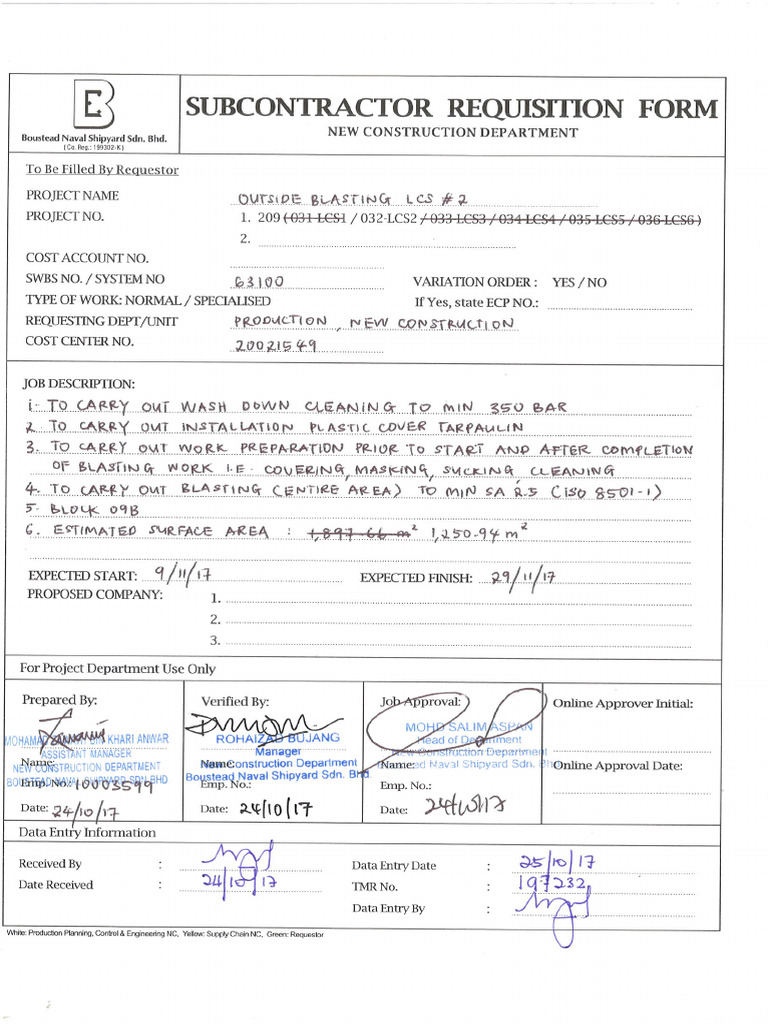 Boustead Naval Shipyard Sdn. Bhd.
( Co. Reg.: 199302-K )
SUBCONTRACTOR REQUISITION FORM
NEW CONSTRUCTION DEPARTMENT
To Be Filled By Requestor
PROJECT NAME OUTSIDE BLASTING LCS #2
PROJECT NO. 1. 209 ( 031-LCS1 / 032-LCS2 / 033-LCS3 / 034-LCS4 / 035-LCS5 / 036-LCS6 )
2.
COST ACCOUNT NO.
SWBS NO. / SYSTEM NO 63100 VARIATION ORDER : YES / NO
TYPE OF WORK: NORMAL / SPECIALISED If Yes, state ECP NO.:
REQUESTING DEPT/UNIT PRODUCTION, NEW CONSTRUCTION
COST CENTER NO. 20021549
JOB DESCRIPTION:
1. TO CARRY OUT WASH DOWN CLEANING TO MIN 350 BAR
2. TO CARRY OUT INSTALLATION PLASTIC COVER TARPAULIN
3. TO CARRY OUT WORK PREPARATION PRIOR TO START AND AFTER COMPLETION
OF BLASTING WORK I.E. COVERING, MASKING, SUCKING, CLEANING
4. TO CARRY OUT BLASTING (ENTIRE AREA) TO MIN SA 2.5 (ISO 8501-1)
5. BLOCK 09B
6. ESTIMATED SURFACE AREA : 1,897-66 m² 1,250-94 m²
EXPECTED START: 9/11/17 EXPECTED FINISH: 29/11/17
PROPOSED COMPANY: 1.
2.
3.
For Project Department Use Only
Prepared By: Verified By: Job Approval: Online Approver Initial:
KHARI ANWAR ROHAIZAD BUJANG MOHD SALIM ASPAN
ASSISTANT MANAGER Manager Head of Department
Name: NEW CONSTRUCTION DEPARTMENT Name: New Construction Department Name: New Construction Department Online Approval Date:
BOUSTEAD NAVAL SHIPYARD SDN BHD Boustead Naval Shipyard Sdn. Bhd. Boustead Naval Shipyard Sdn. Bhd.
Emp. No.: 10003599 Emp. No.: Emp. No.:
Date: 24/10/17 Date: 24/10/17 Date: 24/10/17
Data Entry Information
Received By : Data Entry Date : 25/10/17
Date Received : 24/10/17 TMR No. : 197232
Data Entry By :
White: Production Planning, Control & Engineering NC, Yellow: Supply Chain NC, Green: Requestor